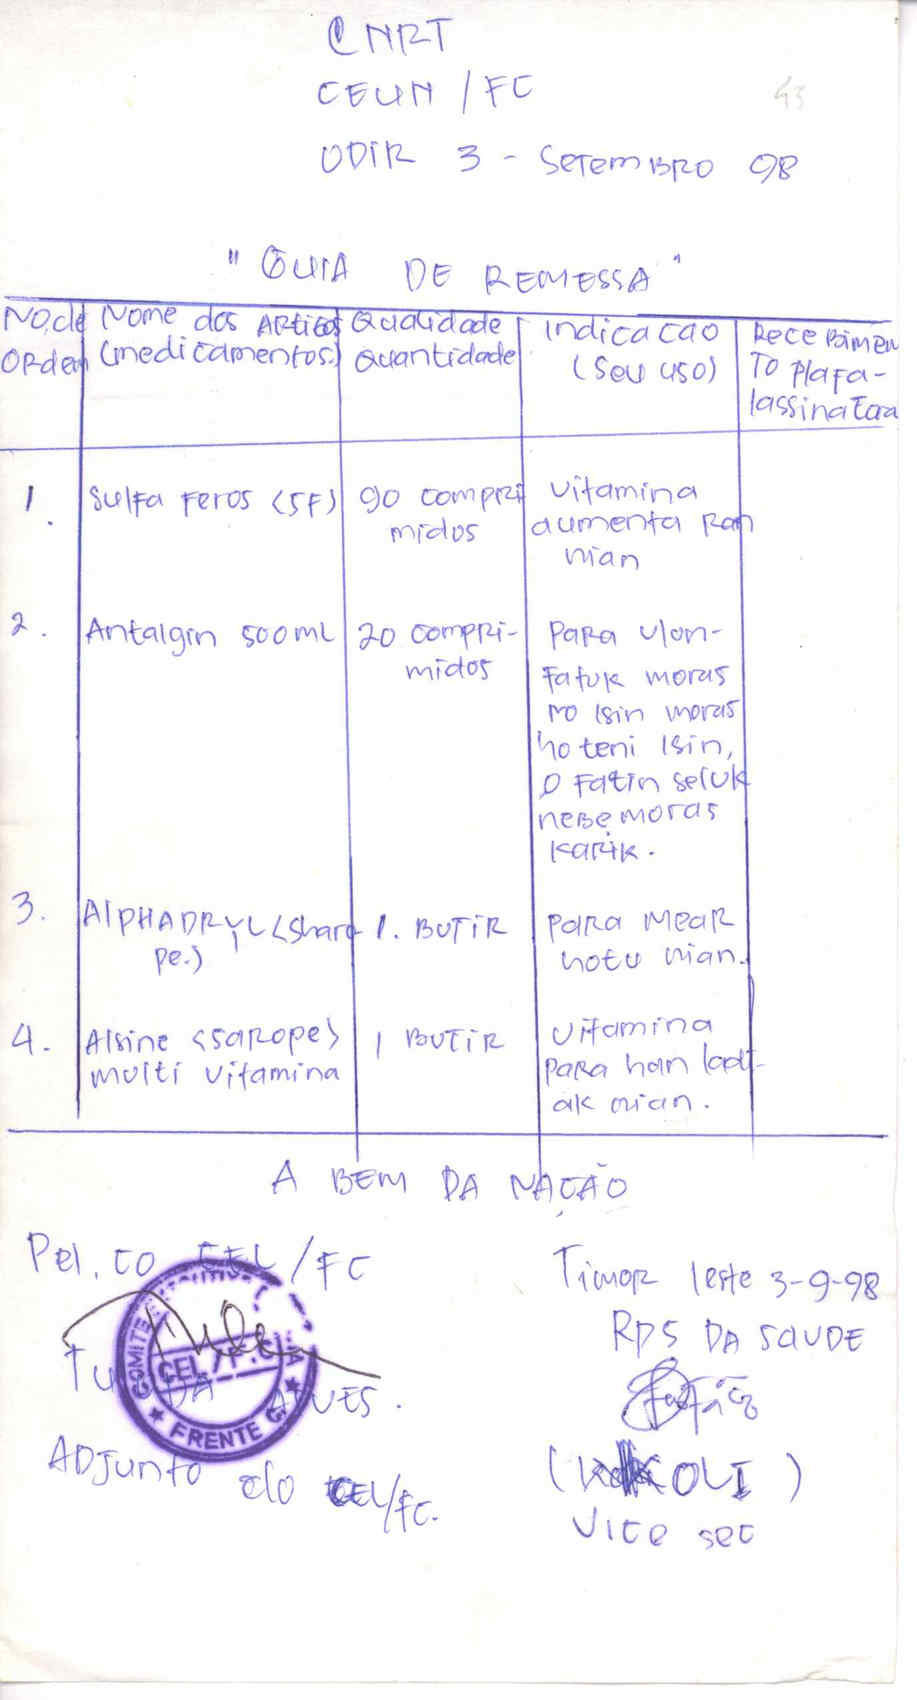 CNRT
CEUN/FC
43
ODIR 3 - Setembro 98
"GUIA DE REMESSA"
No.de Orden
Nome dos Artigos (medicamentos.)
Qualidade Quantidade
Indicacao (Seu uso)
Recebimento
1.
Sulfa Feros (SF)
90 comprimidos
Vitamina
aumenta Ran
nian
2.
Antalgin 500ml
20 Compri-
midos
Para Ulon-
Fatuk moras
no Isin moras
ho teni Isin,
o Fatin seluk
nebe moras
karik.
3.
AlPHADRYL
pe.)
1. BUTIR
Para Mear
hotu nian.
4.
Alsine (Sarope)
multi Vitamina
1 BUTIR
Vitamina
Para han ladi-
ak nian.
A BEM DA NAÇÃO
Pel. CO CEL/FC
Timor leste 3-9-98
RPS DA SAUDE
COMITE
CEL/F.C.
FRENTE C.
DA ALVES.
ADJunto do CEL/FC.
OLI)
Vice sec